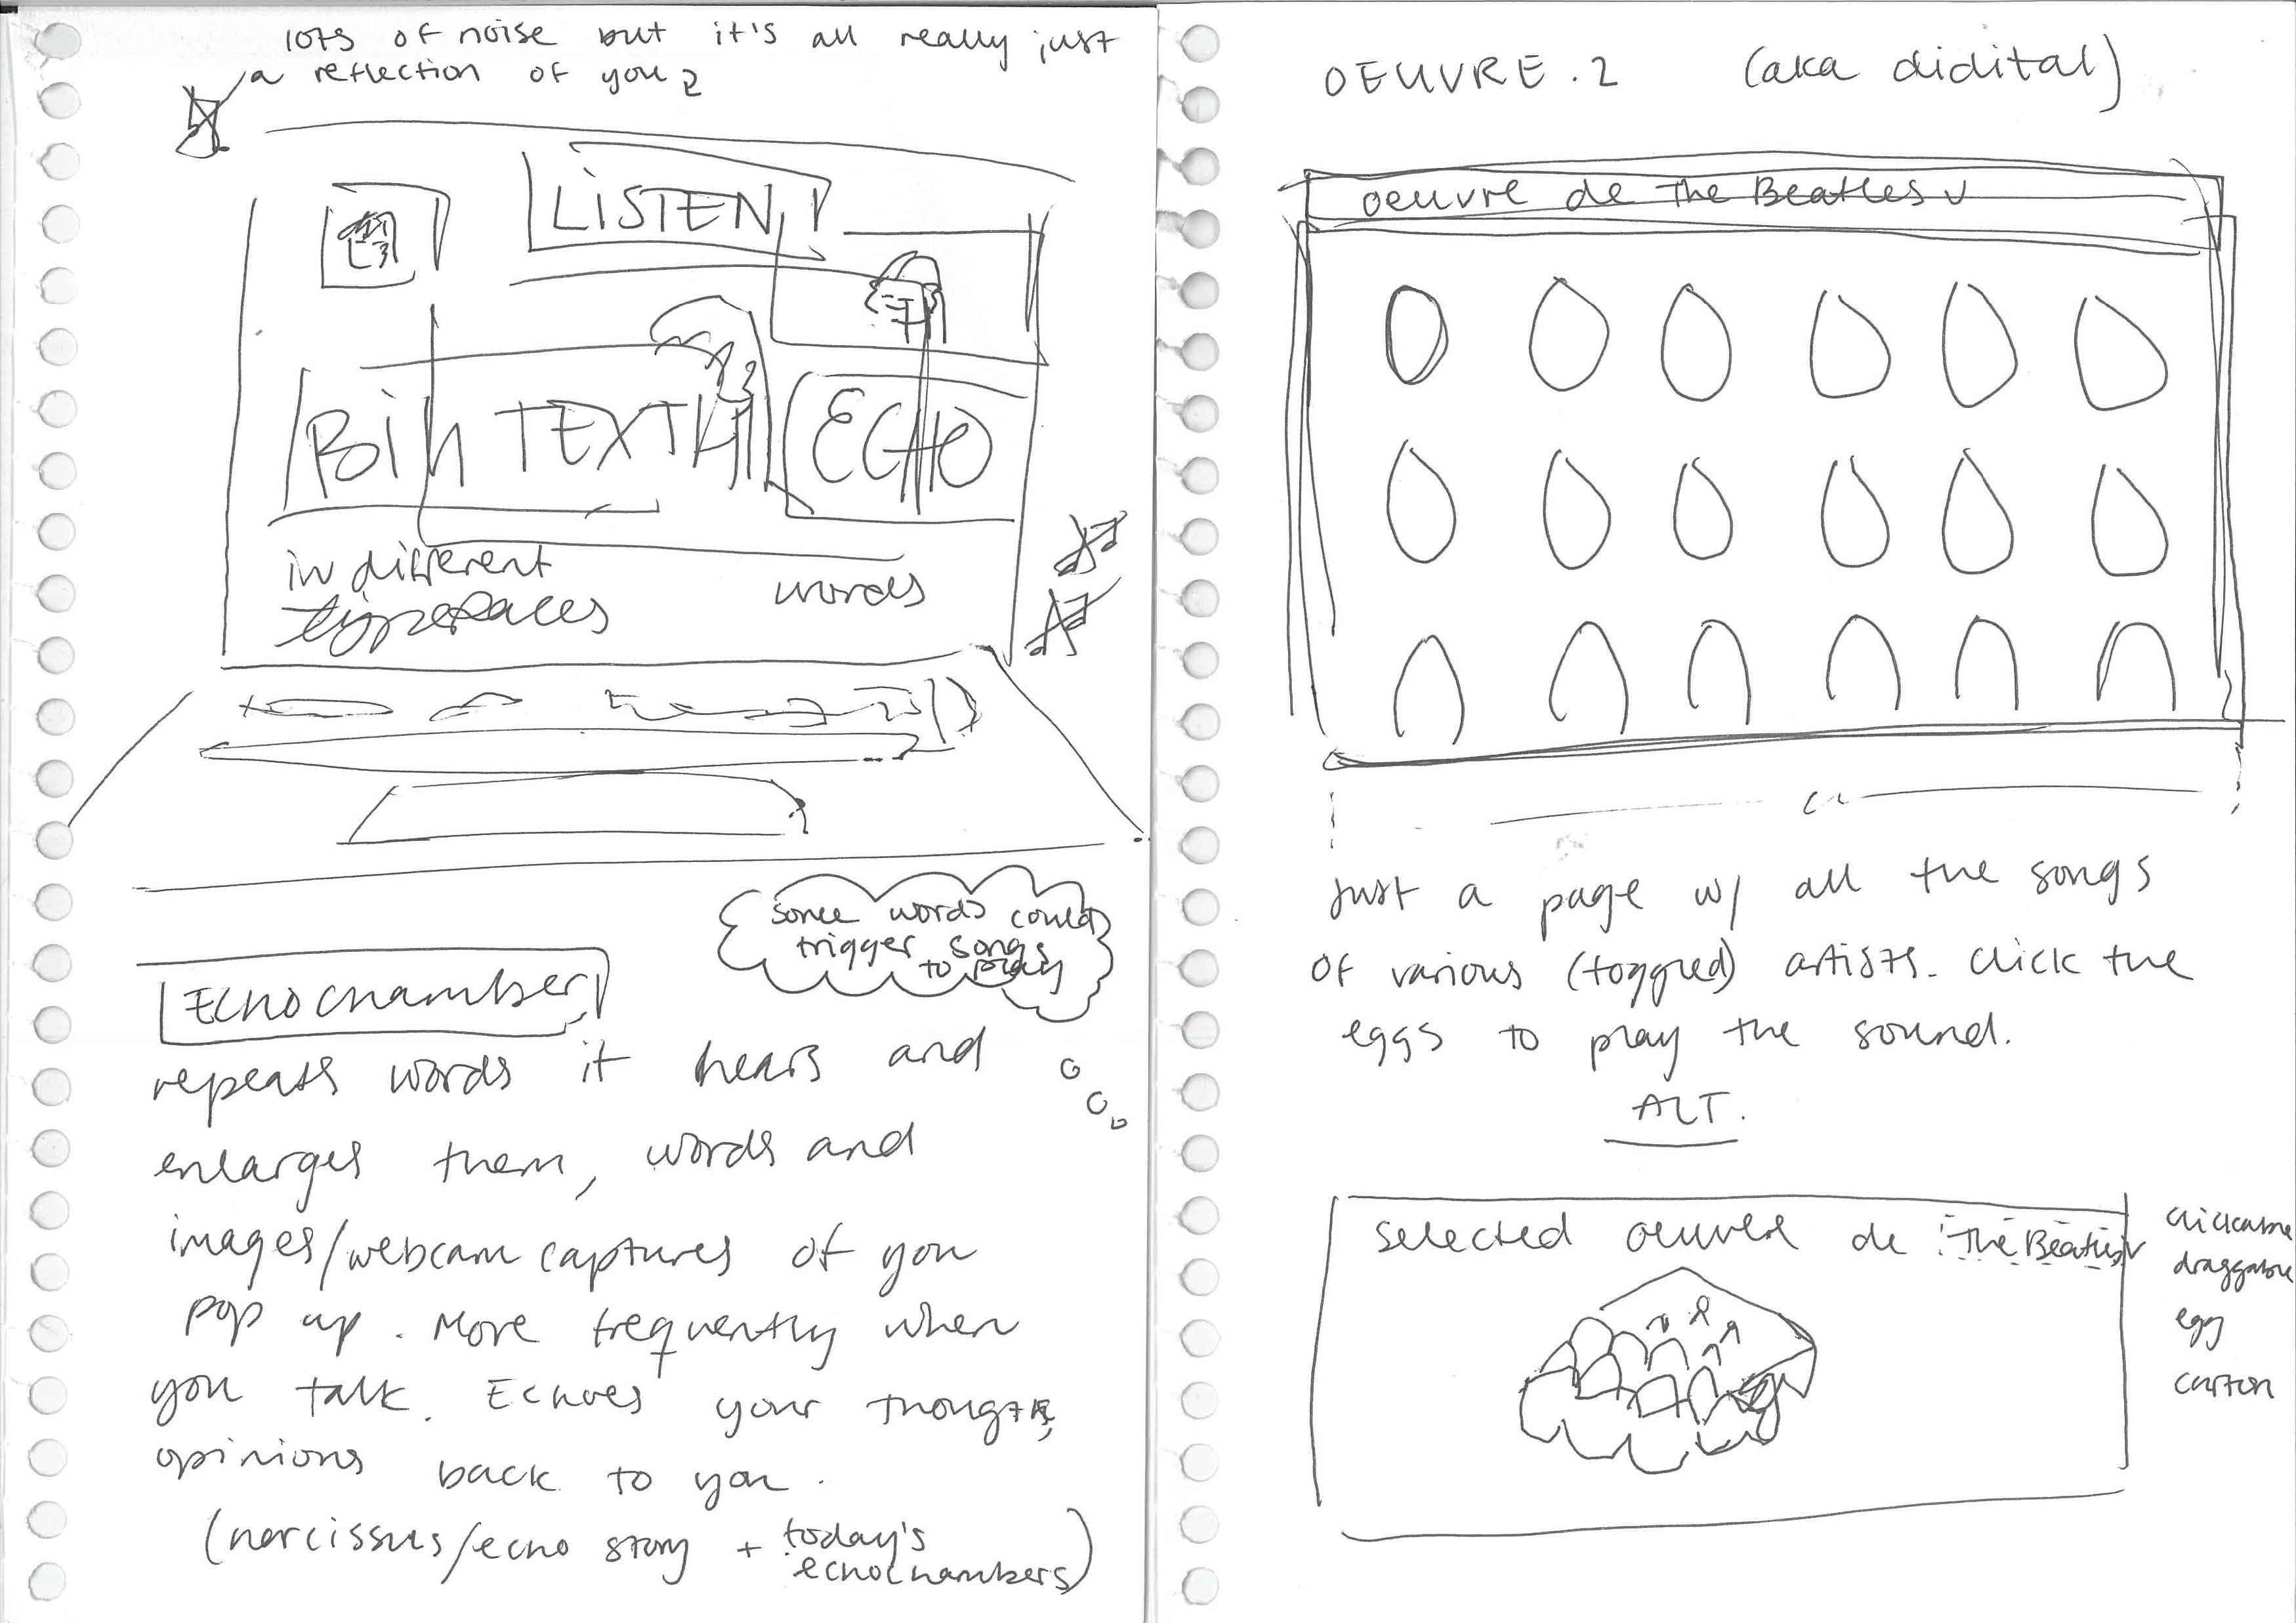 lots of noise but it's all really just
a reflection of you
LISTEN
ECHO
in different
typefaces
words
some words could
trigger songs
to play
Echochamber
repeats words it hears and
enlarges them, words and
images/webcam captures of you
pop up. More frequently when
you talk. Echoes your thoughts,
opinions back to you.
(narcissus/echo story + today's
echochambers)
OEUVRE.2 (aka didital)
oeuvre de The Beatles
Just a page w/ all the songs
of various (toggled) artists. Click the
eggs to play the sound.
ALT.
selected oeuvre de The Beatles
clickable
draggable
egg
carton